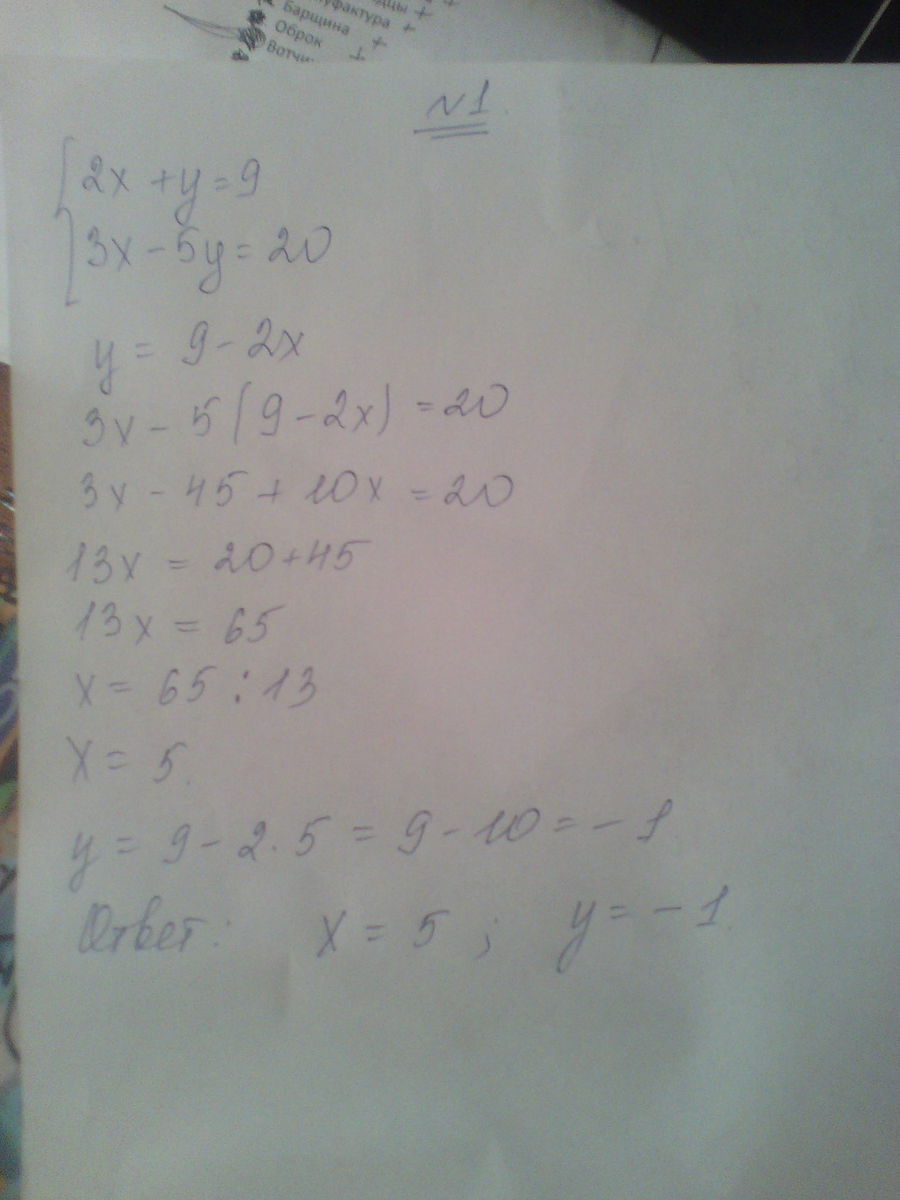 Барщина +
Оброк +
№1.
2x + y = 9
3x - 5y = 20
y = 9 - 2x
3x - 5(9 - 2x) = 20
3x - 45 + 10x = 20
13x = 20 + 45
13x = 65
x = 65 : 13
x = 5.
y = 9 - 2 · 5 = 9 - 10 = -1.
Ответ: x = 5 ; y = -1.